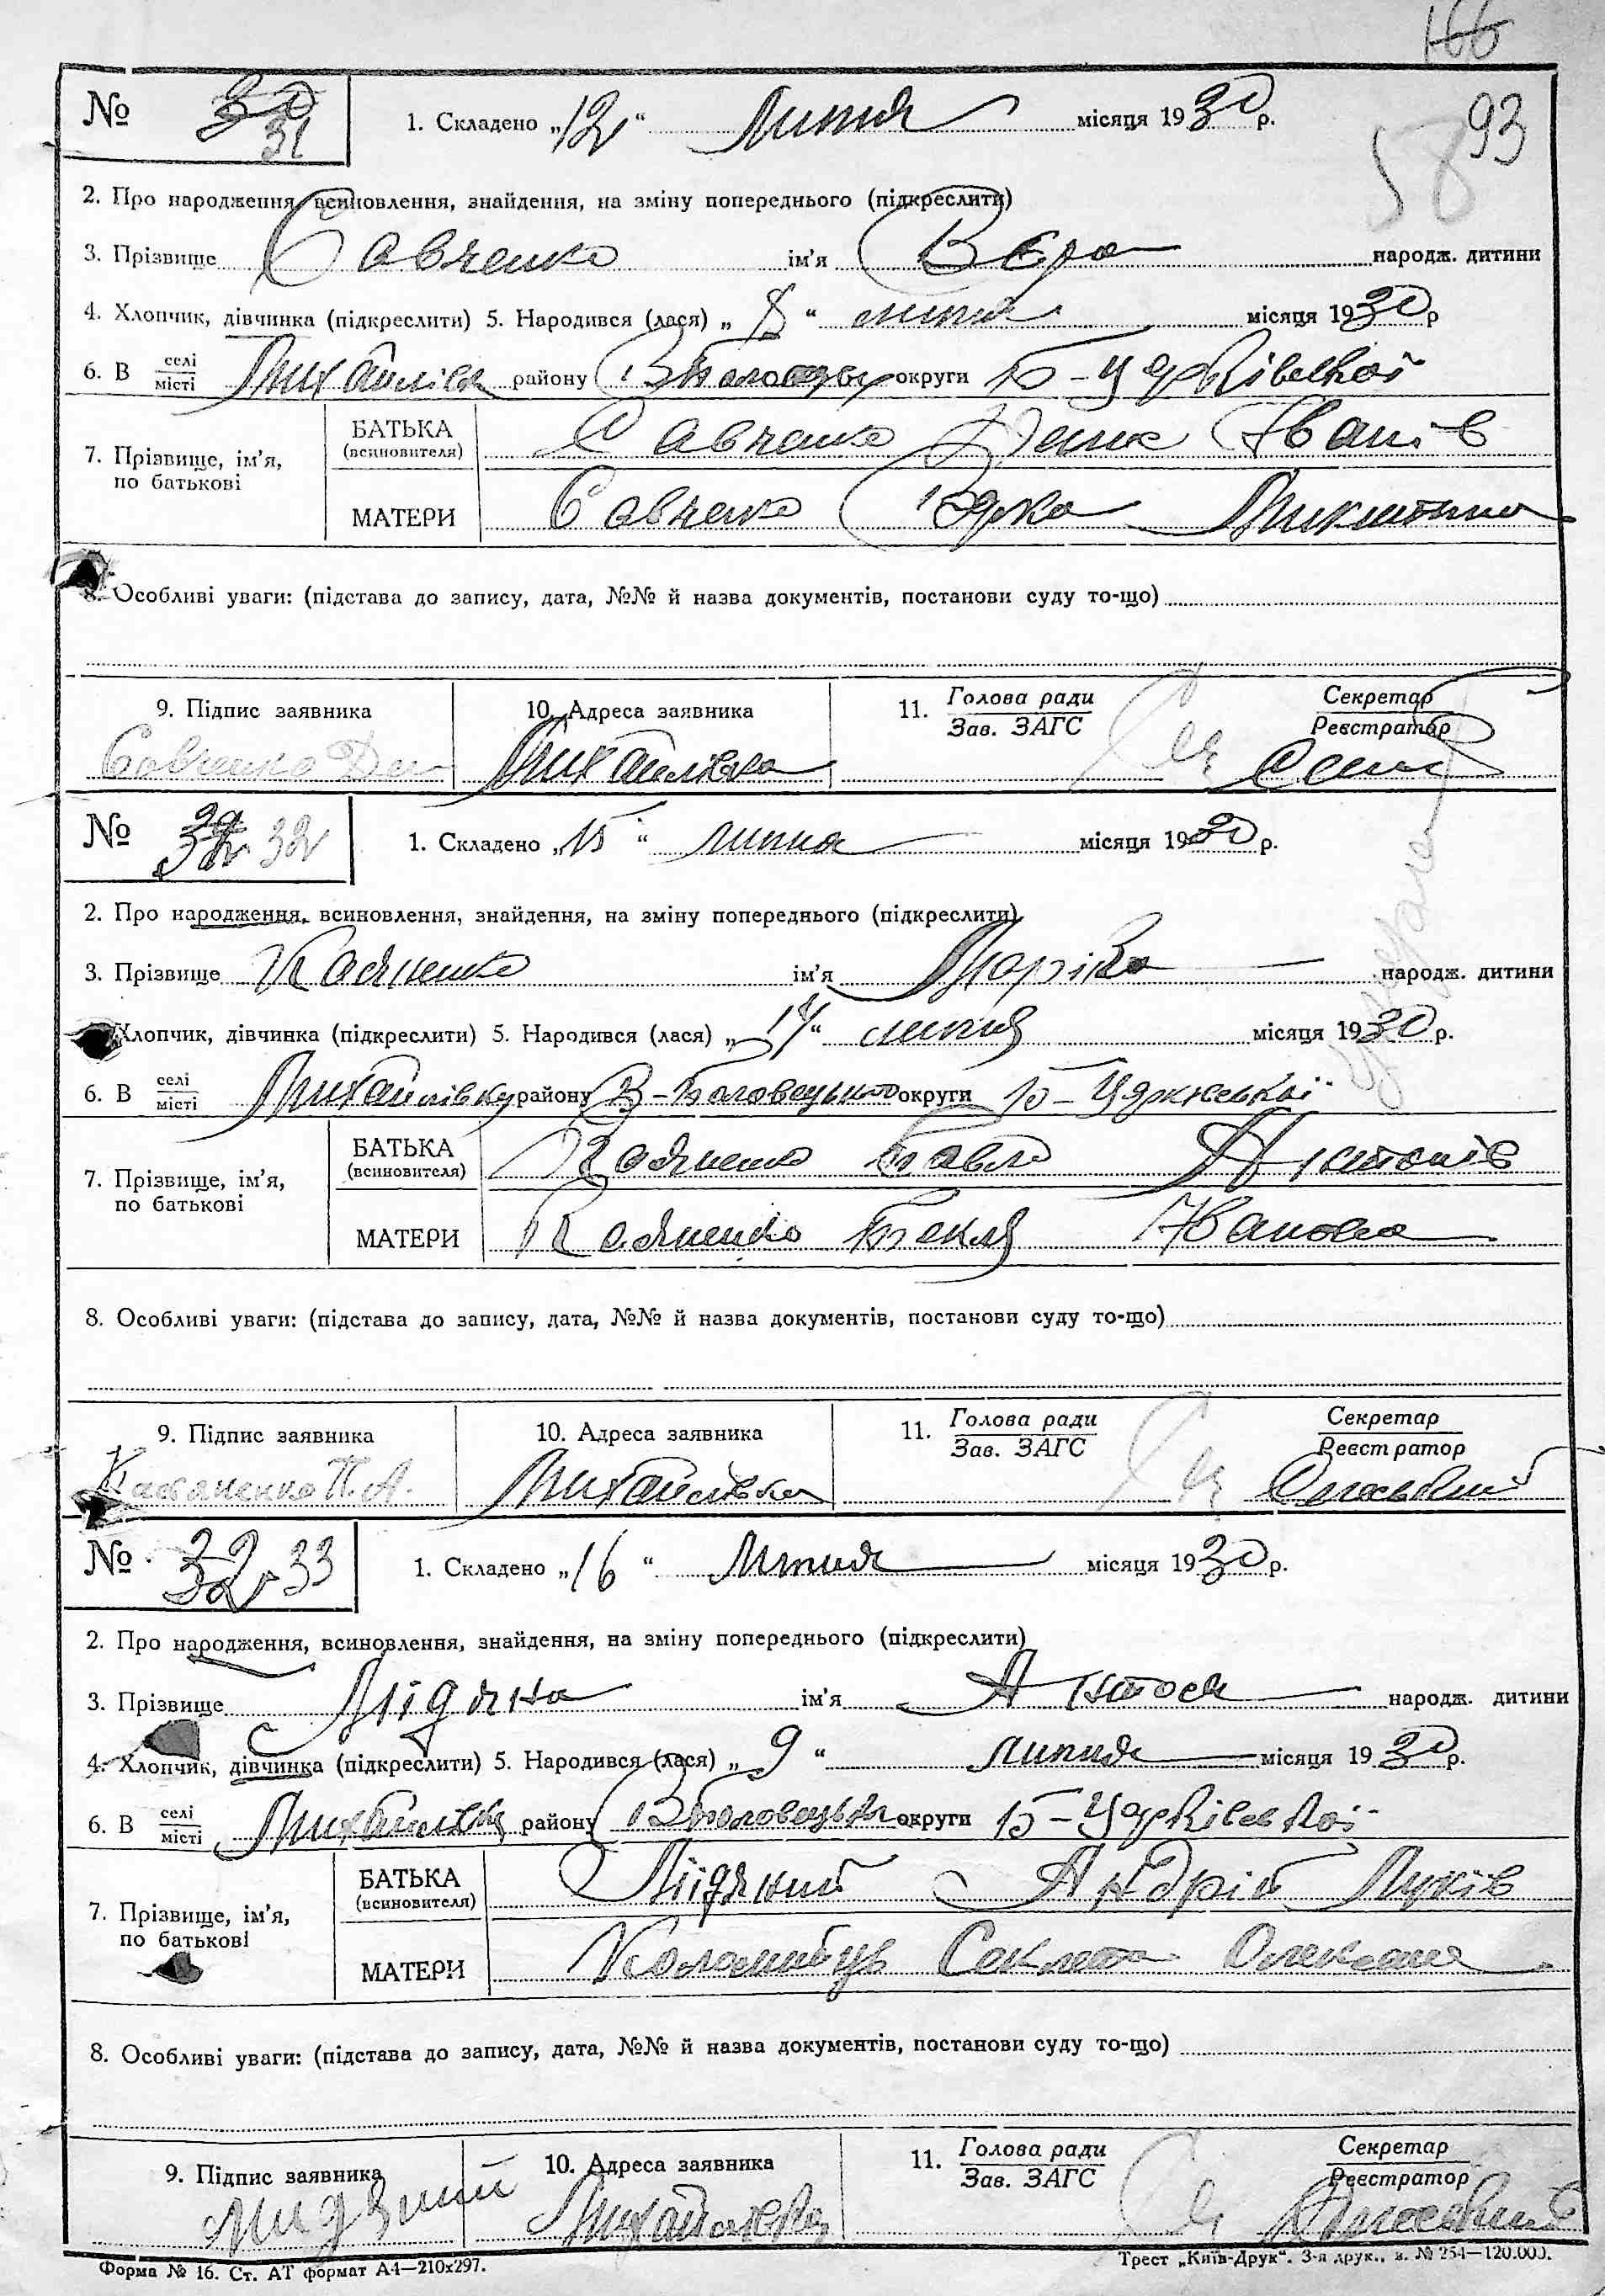 166
93
58
№ 30 31
1. Складено „12“ Липня місяця 1930 р.
2. Про народження, всиновлення, знайдення, на зміну попереднього (підкреслити)
3. Прізвище Савченко ім'я Вєра народж. дитини
4. Хлопчик, дівчинка (підкреслити) 5. Народився (лася) „8“ липня місяця 1930 р
6. В селі/місті Михайлівка району округи Б-Церківської
7. Прізвище, ім'я, по батькові
БАТЬКА (всиновителя) Савченко Денис Іванів
МАТЕРИ Савченко
8. Особливі уваги: (підстава до запису, дата, №№ й назва документів, постанови суду то-що)
9. Підпис заявника Савченко Де
10. Адреса заявника Михайлівка
11. Голова ради/Зав. ЗАГС
Секретар/Реєстратор
№ 32
1. Складено „15“ липня місяця 1930 р.
2. Про народження, всиновлення, знайдення, на зміну попереднього (підкреслити)
3. Прізвище ім'я Марійка народж. дитини
Хлопчик, дівчинка (підкреслити) 5. Народився (лася) „14“ липня місяця 1930 р.
6. В селі/місті Михайлівку району В-Половецького округи Б-Церківської
7. Прізвище, ім'я, по батькові
БАТЬКА (всиновителя) Павло Антонів
МАТЕРИ Текля Іванова
8. Особливі уваги: (підстава до запису, дата, №№ й назва документів, постанови суду то-що)
9. Підпис заявника П. А.
10. Адреса заявника Михайлівка
11. Голова ради/Зав. ЗАГС
Секретар/Реєстратор
№ 32 33
1. Складено „16“ Липня місяця 1930 р.
2. Про народження, всиновлення, знайдення, на зміну попереднього (підкреслити)
3. Прізвище ім'я Антося народж. дитини
4. Хлопчик, дівчинка (підкреслити) 5. Народився (лася) „9“ липня місяця 1930 р.
6. В селі/місті Михайлівка району округи Б-Церківської
7. Прізвище, ім'я, по батькові
БАТЬКА (всиновителя) Андрій Луків
МАТЕРИ Коломиєць Секлета
8. Особливі уваги: (підстава до запису, дата, №№ й назва документів, постанови суду то-що)
9. Підпис заявника
10. Адреса заявника Михайлівка
11. Голова ради/Зав. ЗАГС
Секретар/Реєстратор
Форма № 16. Ст. АТ формат А4—210х297.
Трест „Київ-Друк“. 3-я друк., з. № 254—120.000.